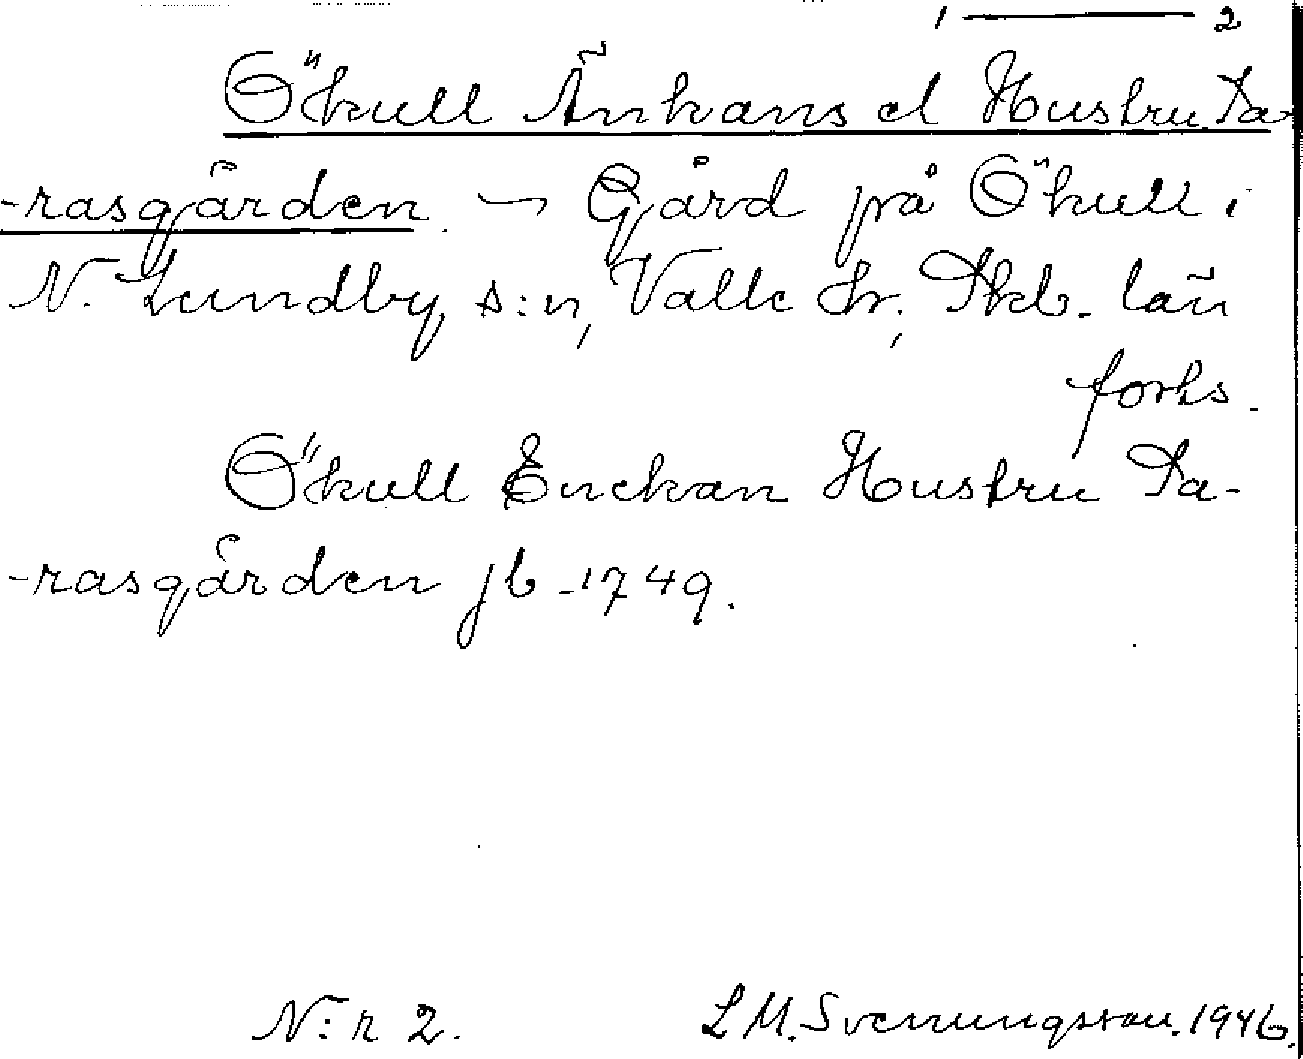 1 — 2
Ökull Änkans el Hustru Sa-
-rasgården. — Gård på Ökull i
N. Lundby s:n, Valle hr., Skb. län
forts.
Ökull Enckan Hustru Sa-
-rasgården jb -1749.
N:r 2. L M. Svenungsson. 1946.